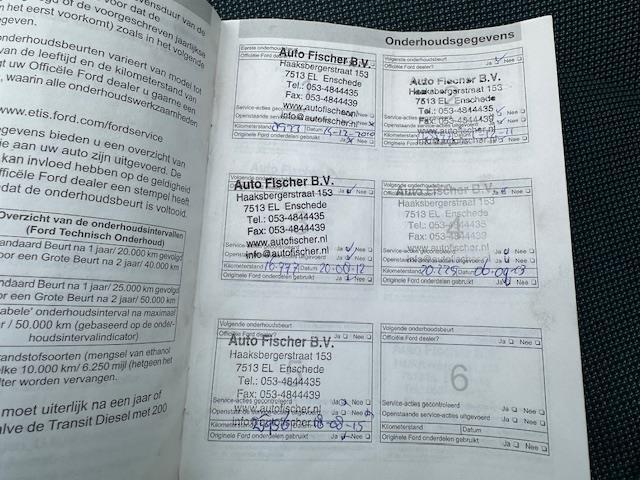 t het eerst voorkomt) zoals in het volgende
onderhoudsbeurten varieert van model tot
de leeftijd en de kilometerstand van
gt uw Officiële Ford dealer u gaarne een
, waarin alle onderhoudswerkzaamheden
www.etis.ford.com/fordservice
gegevens bieden u een overzicht van
ie aan uw auto zijn uitgevoerd. De
kan invloed hebben op de geldigheid
fficiële Ford dealer een stempel heeft
dat de onderhoudsbeurt is voltooid.
Overzicht van de onderhoudsintervallen
(Ford Technisch Onderhoud)
andaard Beurt na 1 jaar/ 20.000 km gevolgd
oor een Grote Beurt na 2 jaar/ 40.000 km
ndaard Beurt na 1 jaar/ 25.000 km gevolgd
or een Grote Beurt na 2 jaar/ 50.000 km
abele' onderhoudsinterval na maximaal
r / 50.000 km (gebaseerd op de onder-
houdsintervalindicator)
randstofsoorten (mengsel van ethanol
elke 10.000 km/ 6.250 mijl (hetgeen het
lter worden vervangen.
moet uiterlijk na een jaar of
alve de Transit Diesel met 200
Onderhoudsgegevens
Auto Fischer B.V.
Haaksbergerstraat 153
7513 EL Enschede
Tel.: 053-4844435
Fax: 053-4844439
www.autofischer.nl
info@autofischer.nl
Kilometerstand Datum
Originele Ford onderdelen gebruikt Ja Nee
Volgende onderhoudsbeurt
Officiële Ford dealer? Ja Nee
Auto Fischer B.V.
Haaksbergerstraat 153
7513 EL Enschede
Tel.: 053-4844435
Fax: 053-4844439
www.autofischer.nl
info@autofischer.nl
Originele Ford onderdelen gebruikt Ja Nee
Auto Fischer B.V.
Haaksbergerstraat 153
7513 EL Enschede
Tel.: 053-4844435
Fax: 053-4844439
www.autofischer.nl
info@autofischer.nl
Kilometerstand Datum 20-08-12
Originele Ford onderdelen gebruikt Ja Nee
Auto Fischer B.V.
Haaksbergerstraat 153
7513 EL Enschede
Tel.: 053-4844435
Fax: 053-4844439
www.autofischer.nl
info@autofischer.nl
4
Kilometerstand Datum
Originele Ford onderdelen gebruikt Ja Nee
Volgende onderhoudsbeurt
Officiële Ford dealer? Ja Nee
Auto Fischer B.V.
Haaksbergerstraat 153
7513 EL Enschede
Tel.: 053-4844435
Fax: 053-4844439
www.autofischer.nl
info@autofischer.nl
Service-acties gecontroleerd Ja Nee
Openstaande service-acties uitgevoerd Ja Nee
Originele Ford onderdelen gebruikt Ja Nee
Volgende onderhoudsbeurt
Officiële Ford dealer? Ja Nee
6
Service-acties gecontroleerd Ja Nee
Openstaande service-acties uitgevoerd Ja Nee
Kilometerstand Datum
Originele Ford onderdelen gebruikt Ja Nee